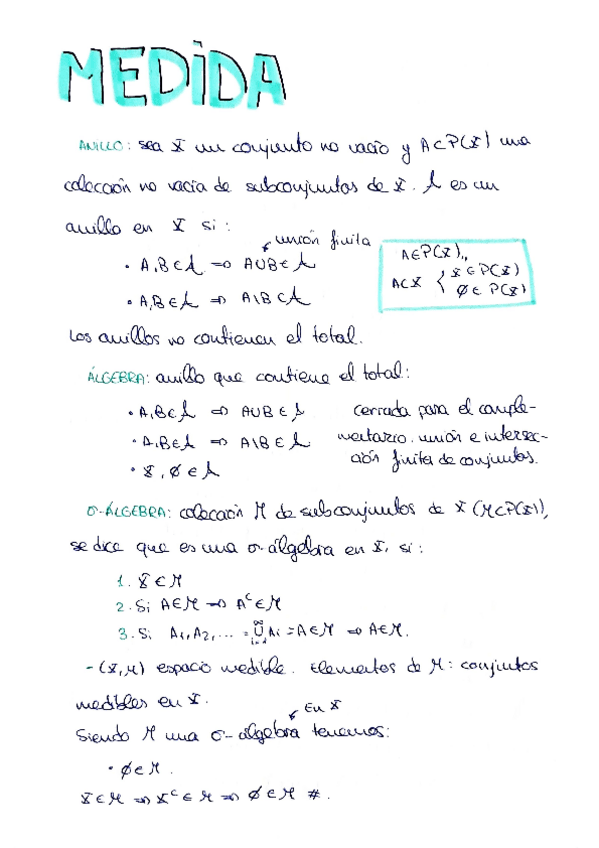 MEDIDA
ANILLO: sea X un conjunto no vacío y A⊂P(X) una
colección no vacía de subconjuntos de X. A es un
anillo en X si:
unión finita
• A,B∈A ⇒ A∪B∈A
• A,B∈A ⇒ A\B⊂A
A∈P(X),,
A⊂X { X∈P(X)
∅∈P(X)
Los anillos no contienen el total.
ÁLGEBRA: anillo que contiene el total:
• A,B∈A ⇒ A∪B∈A cerrada para el comple-
• A,B∈A ⇒ A\B∈A mentario, unión e intersec-
• X, ∅∈A ción finita de conjuntos.
σ-ÁLGEBRA: colección M de subconjuntos de X (M⊂P(X)),
se dice que es una σ-álgebra en X, si:
1. X∈M
2. Si A∈M ⇒ Aᶜ∈M
3. Si A₁,A₂,... = ⋃ᵢ₌₁^∞ Aᵢ = A∈M ⇒ A∈M.
- (X,M) espacio medible. Elementos de M: conjuntos
medibles en X.
En X
Siendo M una σ-álgebra tenemos:
• ∅∈M.
X∈M ⇒ Xᶜ∈M ⇒ ∅∈M #.